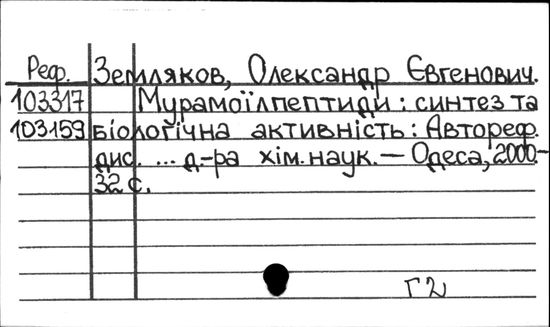 Реф. Земляков, Олександр Євгенович.
103317 Мурамоїлпептиди: синтез та
103159 біологічна активність: Автореф.
дис. ... д-ра хім. наук. — Одеса, 2000.-
32 с.
Г2